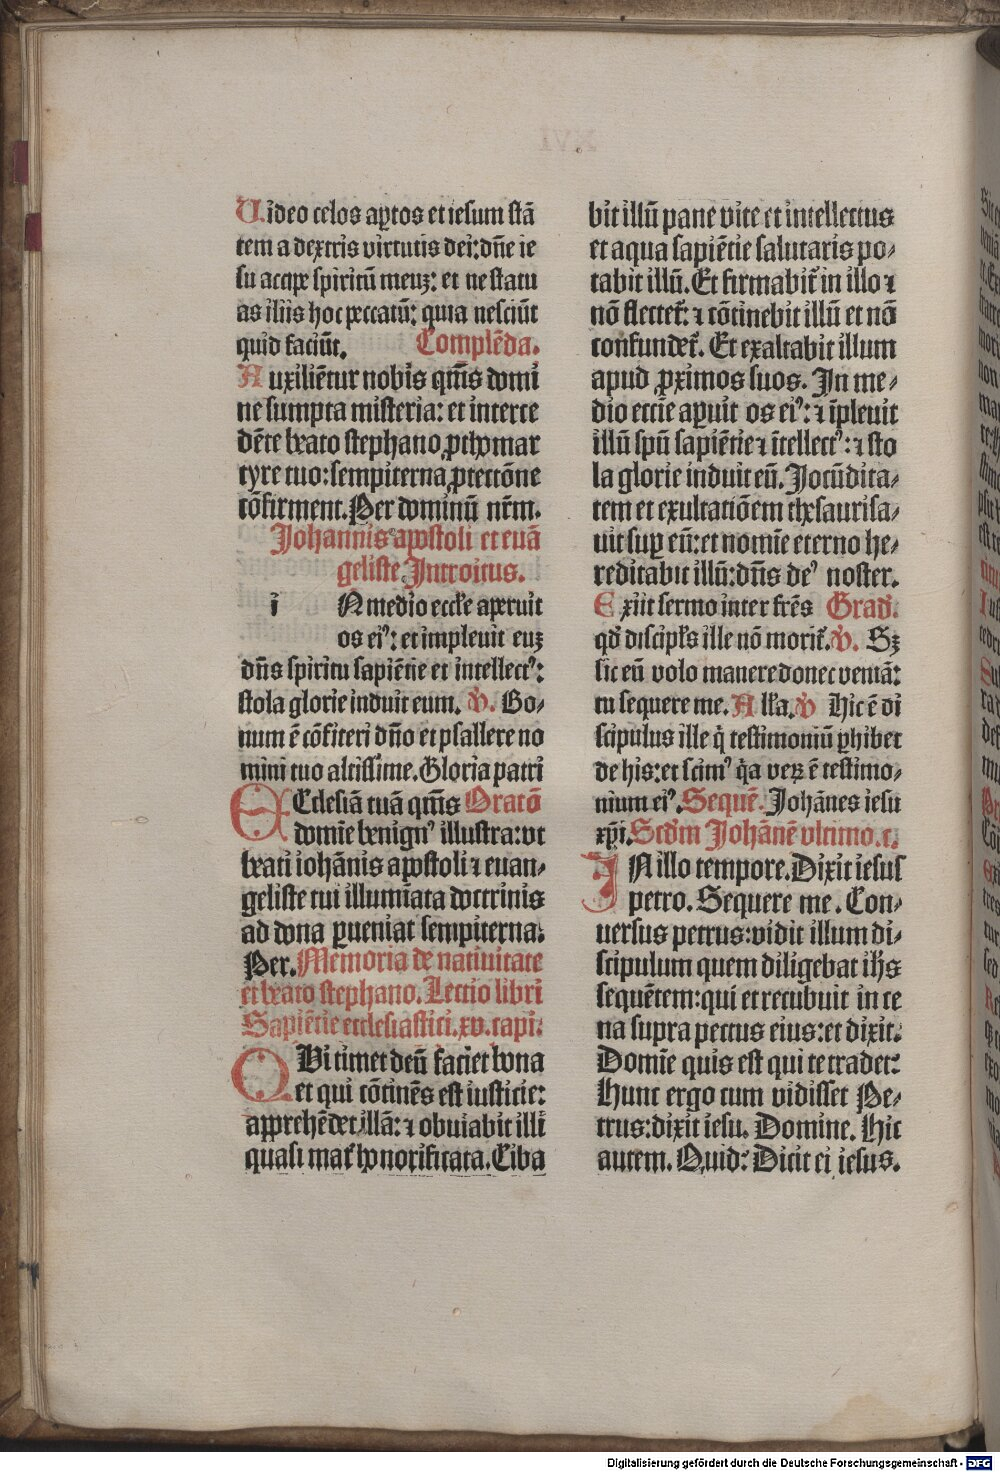 Video celos aꝑtos et iesum stā
tem a dextris virtutis dei: dn̄e ie
su accipe spiritū meuꝫ: et ne statu
as illis hoc peccatū: quia nesciūt
quid faciūt. Complēda.
Auxiliētur nobis qm̄s domi
ne sumpta misteria: et interce
dēte beato stephano ꝓthomar
tyre tuo: sempiterna ꝓtectōne
cōfirment. Per dominū nr̄m.
Johannis apostoli et euā
geliste Introitus.
i N medio eccle aperuit
os eiꝰ: et impleuit euꝫ
dn̄s spiritu sapiētie et intellectꝰ:
stola glorie induit eum. ℣. Bo⸗
num ē cōfiteri dn̄o et psallere no
mini tuo altissime. Gloria patri
Ecclesiā tuā qm̄s Oratō
domīe benignꝰ illustra: vt
beati iohānis apostoli ⁊ euan⸗
geliste tui illumīata doctrinis
ad dona ꝑueniat sempiterna.
Per. Memoria de natiuitate
et beato stephano. Lectio libri
Sapiētie ecclesiastici. xv. capi:
QVi timet deū faciet bona
et qui cōtinēs est iusticie:
apprehēdet illā: ⁊ obuiabit illi
quasi mat̄ honorificata. Ciba
bit illū pane vite et intellectus
et aqua sapiētie salutaris po⸗
tabit illū. Et firmabit̄ in illo ⁊
nō flectet̄: ⁊ cōtinebit illū et nō
confundet̄. Et exaltabit illum
apud ꝓximos suos. In me⸗
dio eccīe aꝑuit os eiꝰ: ⁊ īpleuit
illū spū sapiētie ⁊ ītellectꝰ: ⁊ sto
la glorie induit eū. Jocūdita⸗
tem et exultatiōem thesaurisa⸗
uit suꝑ eū: et nomīe eterno he⸗
reditabit illū: dn̄s deꝰ noster.
Exiit sermo inter fr̄es Grad̄.
qd̄ discipl̄s ille nō morit̄. ℣. Sꝫ
sic eū volo manere donec veniā:
tu sequere me. All̄a. ℣ Hic ē di
scipulus ille q̄ testimoniū ꝑhibet
de his: et scimꝰ q̄a verꝫ ē testimo⸗
nium eiꝰ. Sequē. Johānes iesu
xp̄i. Scd̄m Johānē vltimo. c.
IN illo tempore. Dixit iesus
petro. Sequere me. Con⸗
uersus petrus: vidit illum di⸗
scipulum quem diligebat ih̄s
sequētem: qui et recubuit in ce
na supra pectus eius: et dixit.
Domīe quis est qui te tradet:
Hunc ergo cum vidisset Pe⸗
trus: dixit iesu. Domine. Hic
autem. Quid: Dicit ei iesus.
Digitalisierung gefördert durch die Deutsche Forschungsgemeinschaft - DFG